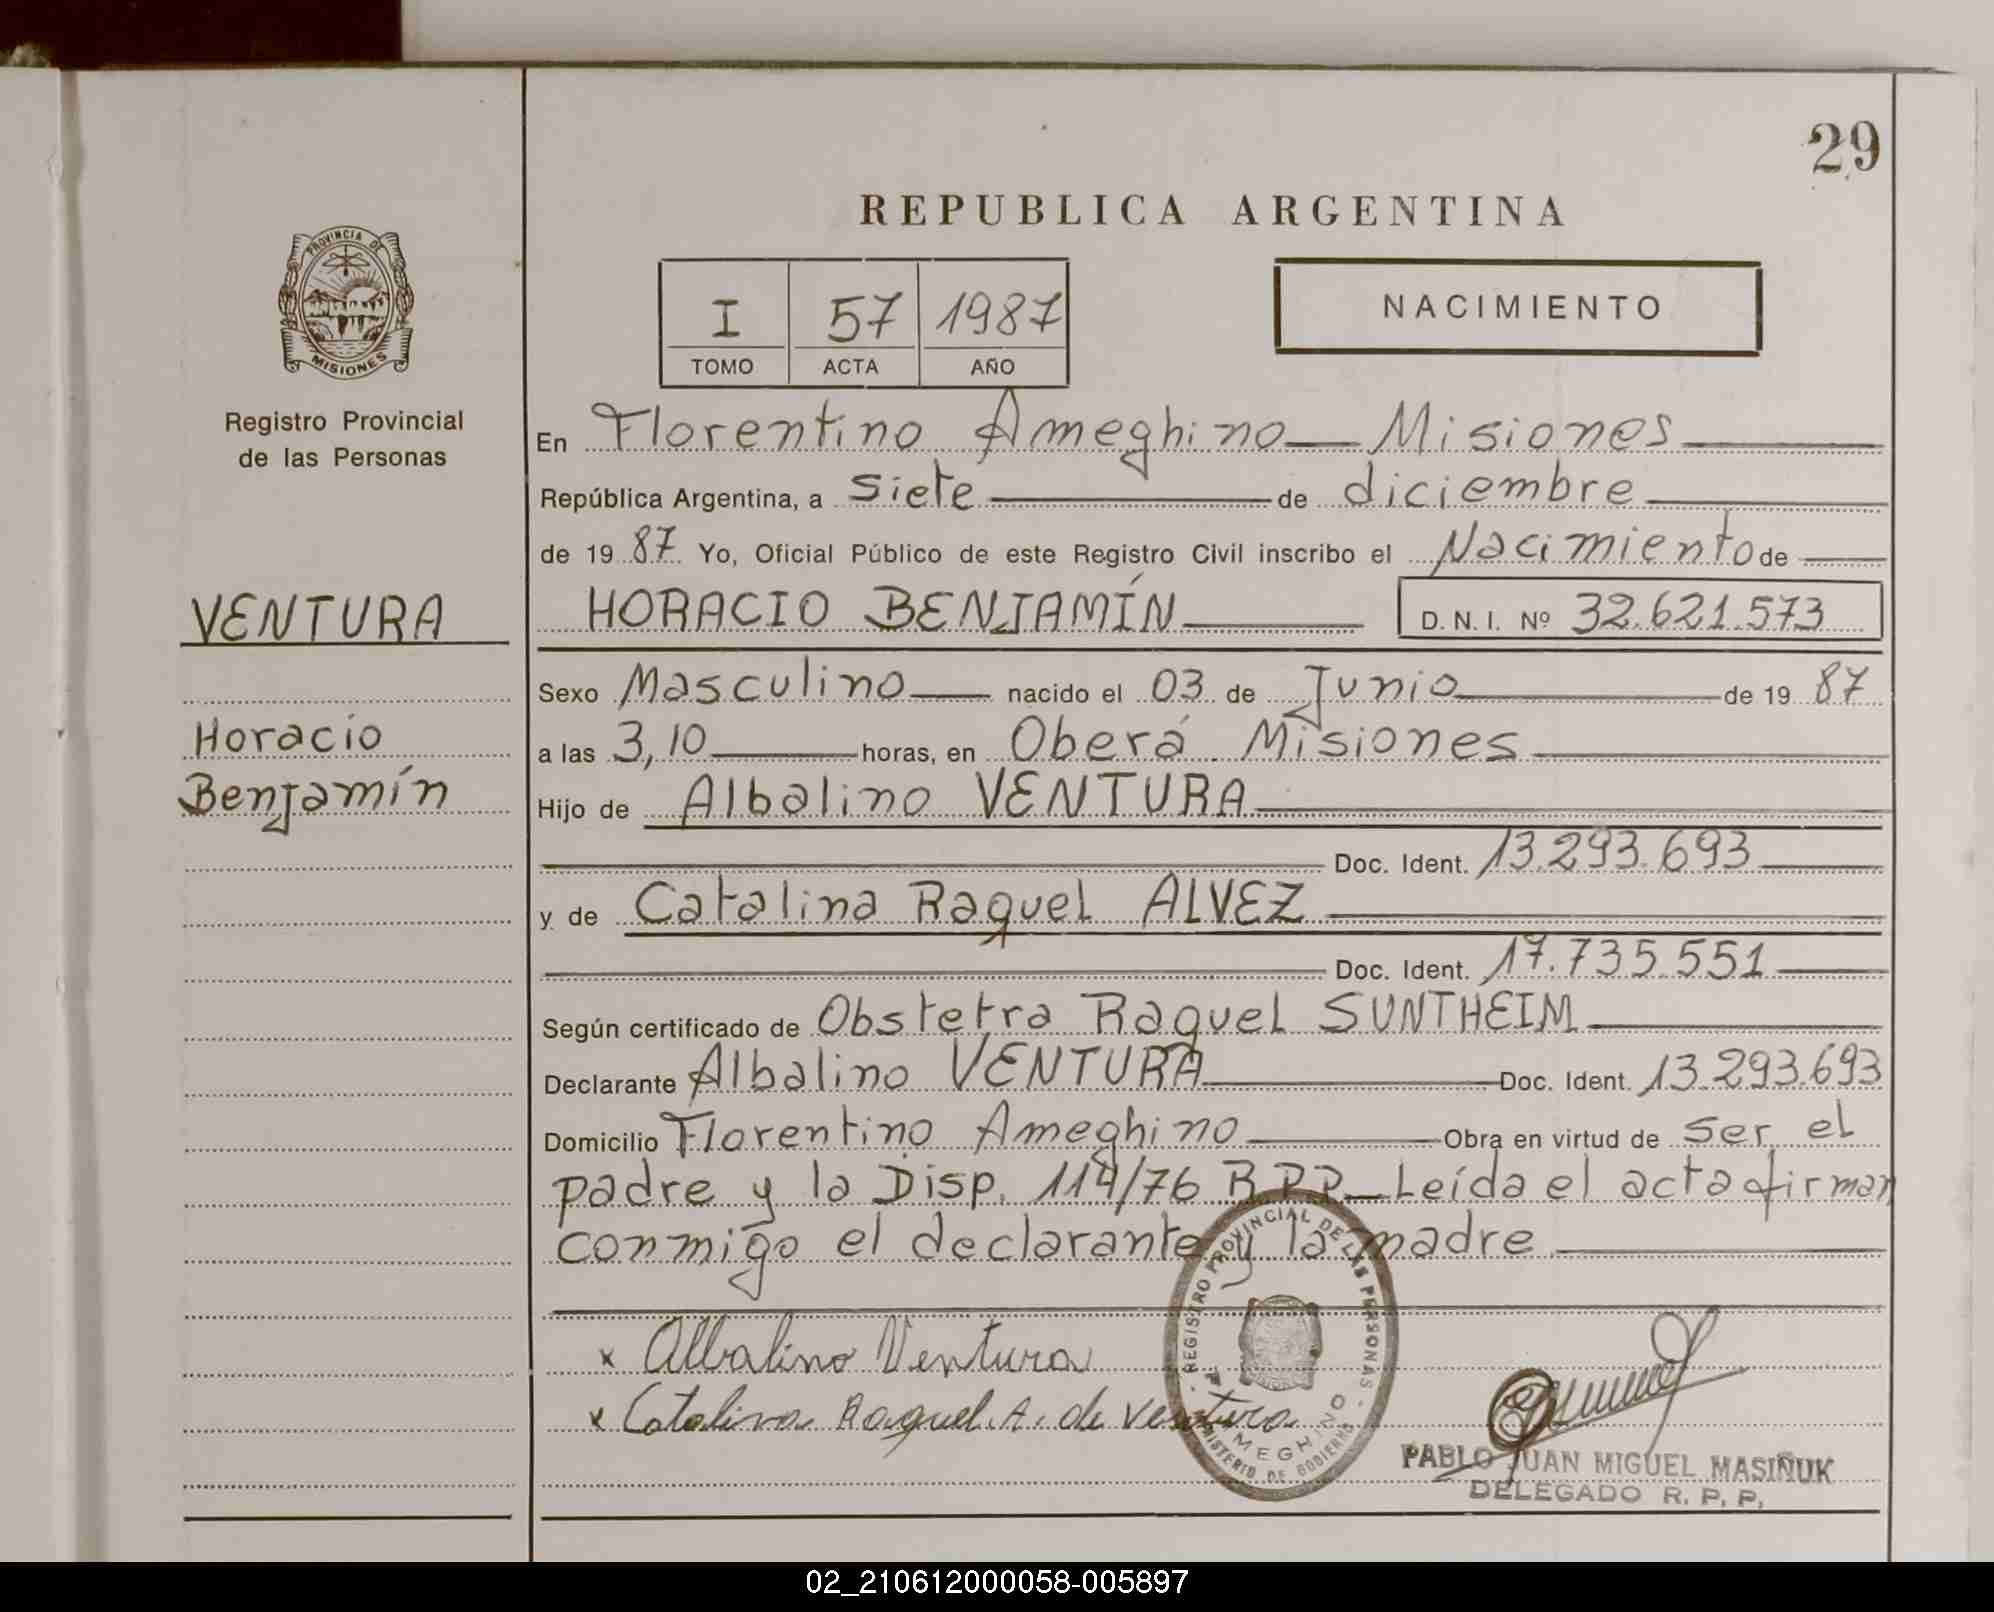 29
REPUBLICA ARGENTINA
PROVINCIA DE
MISIONES
Registro Provincial
de las Personas
I 57 1987
TOMO ACTA AÑO
NACIMIENTO
En Florentino Ameghino — Misiones
República Argentina, a siete de diciembre
de 1987 Yo, Oficial Público de este Registro Civil inscribo el Nacimiento de
VENTURA
HORACIO BENJAMÍN D.N.I. Nº 32.621.573
Sexo Masculino nacido el 03 de Junio de 1987
Horacio
a las 3,10 horas, en Oberá Misiones
Benjamín
Hijo de Albalino VENTURA
Doc. Ident. 13.293.693
y de Catalina Raquel ALVEZ
Doc. Ident. 17.735.551
Según certificado de Obstetra Raquel SUNTHEIM
Declarante Albalino VENTURA Doc. Ident. 13.293.693
Domicilio Florentino Ameghino Obra en virtud de ser el
padre y la Disp. 114/76 R.P.P. — Leída el acta firman
conmigo el declarante y la madre
x Albalino Ventura
x Catalina Raquel A. de Ventura
REGISTRO PROVINCIAL DE LAS PERSONAS
F. AMEGHINO
MINISTERIO DE GOBIERNO
PABLO JUAN MIGUEL MASIÑUK
DELEGADO R. P. P.
02_210612000058-005897